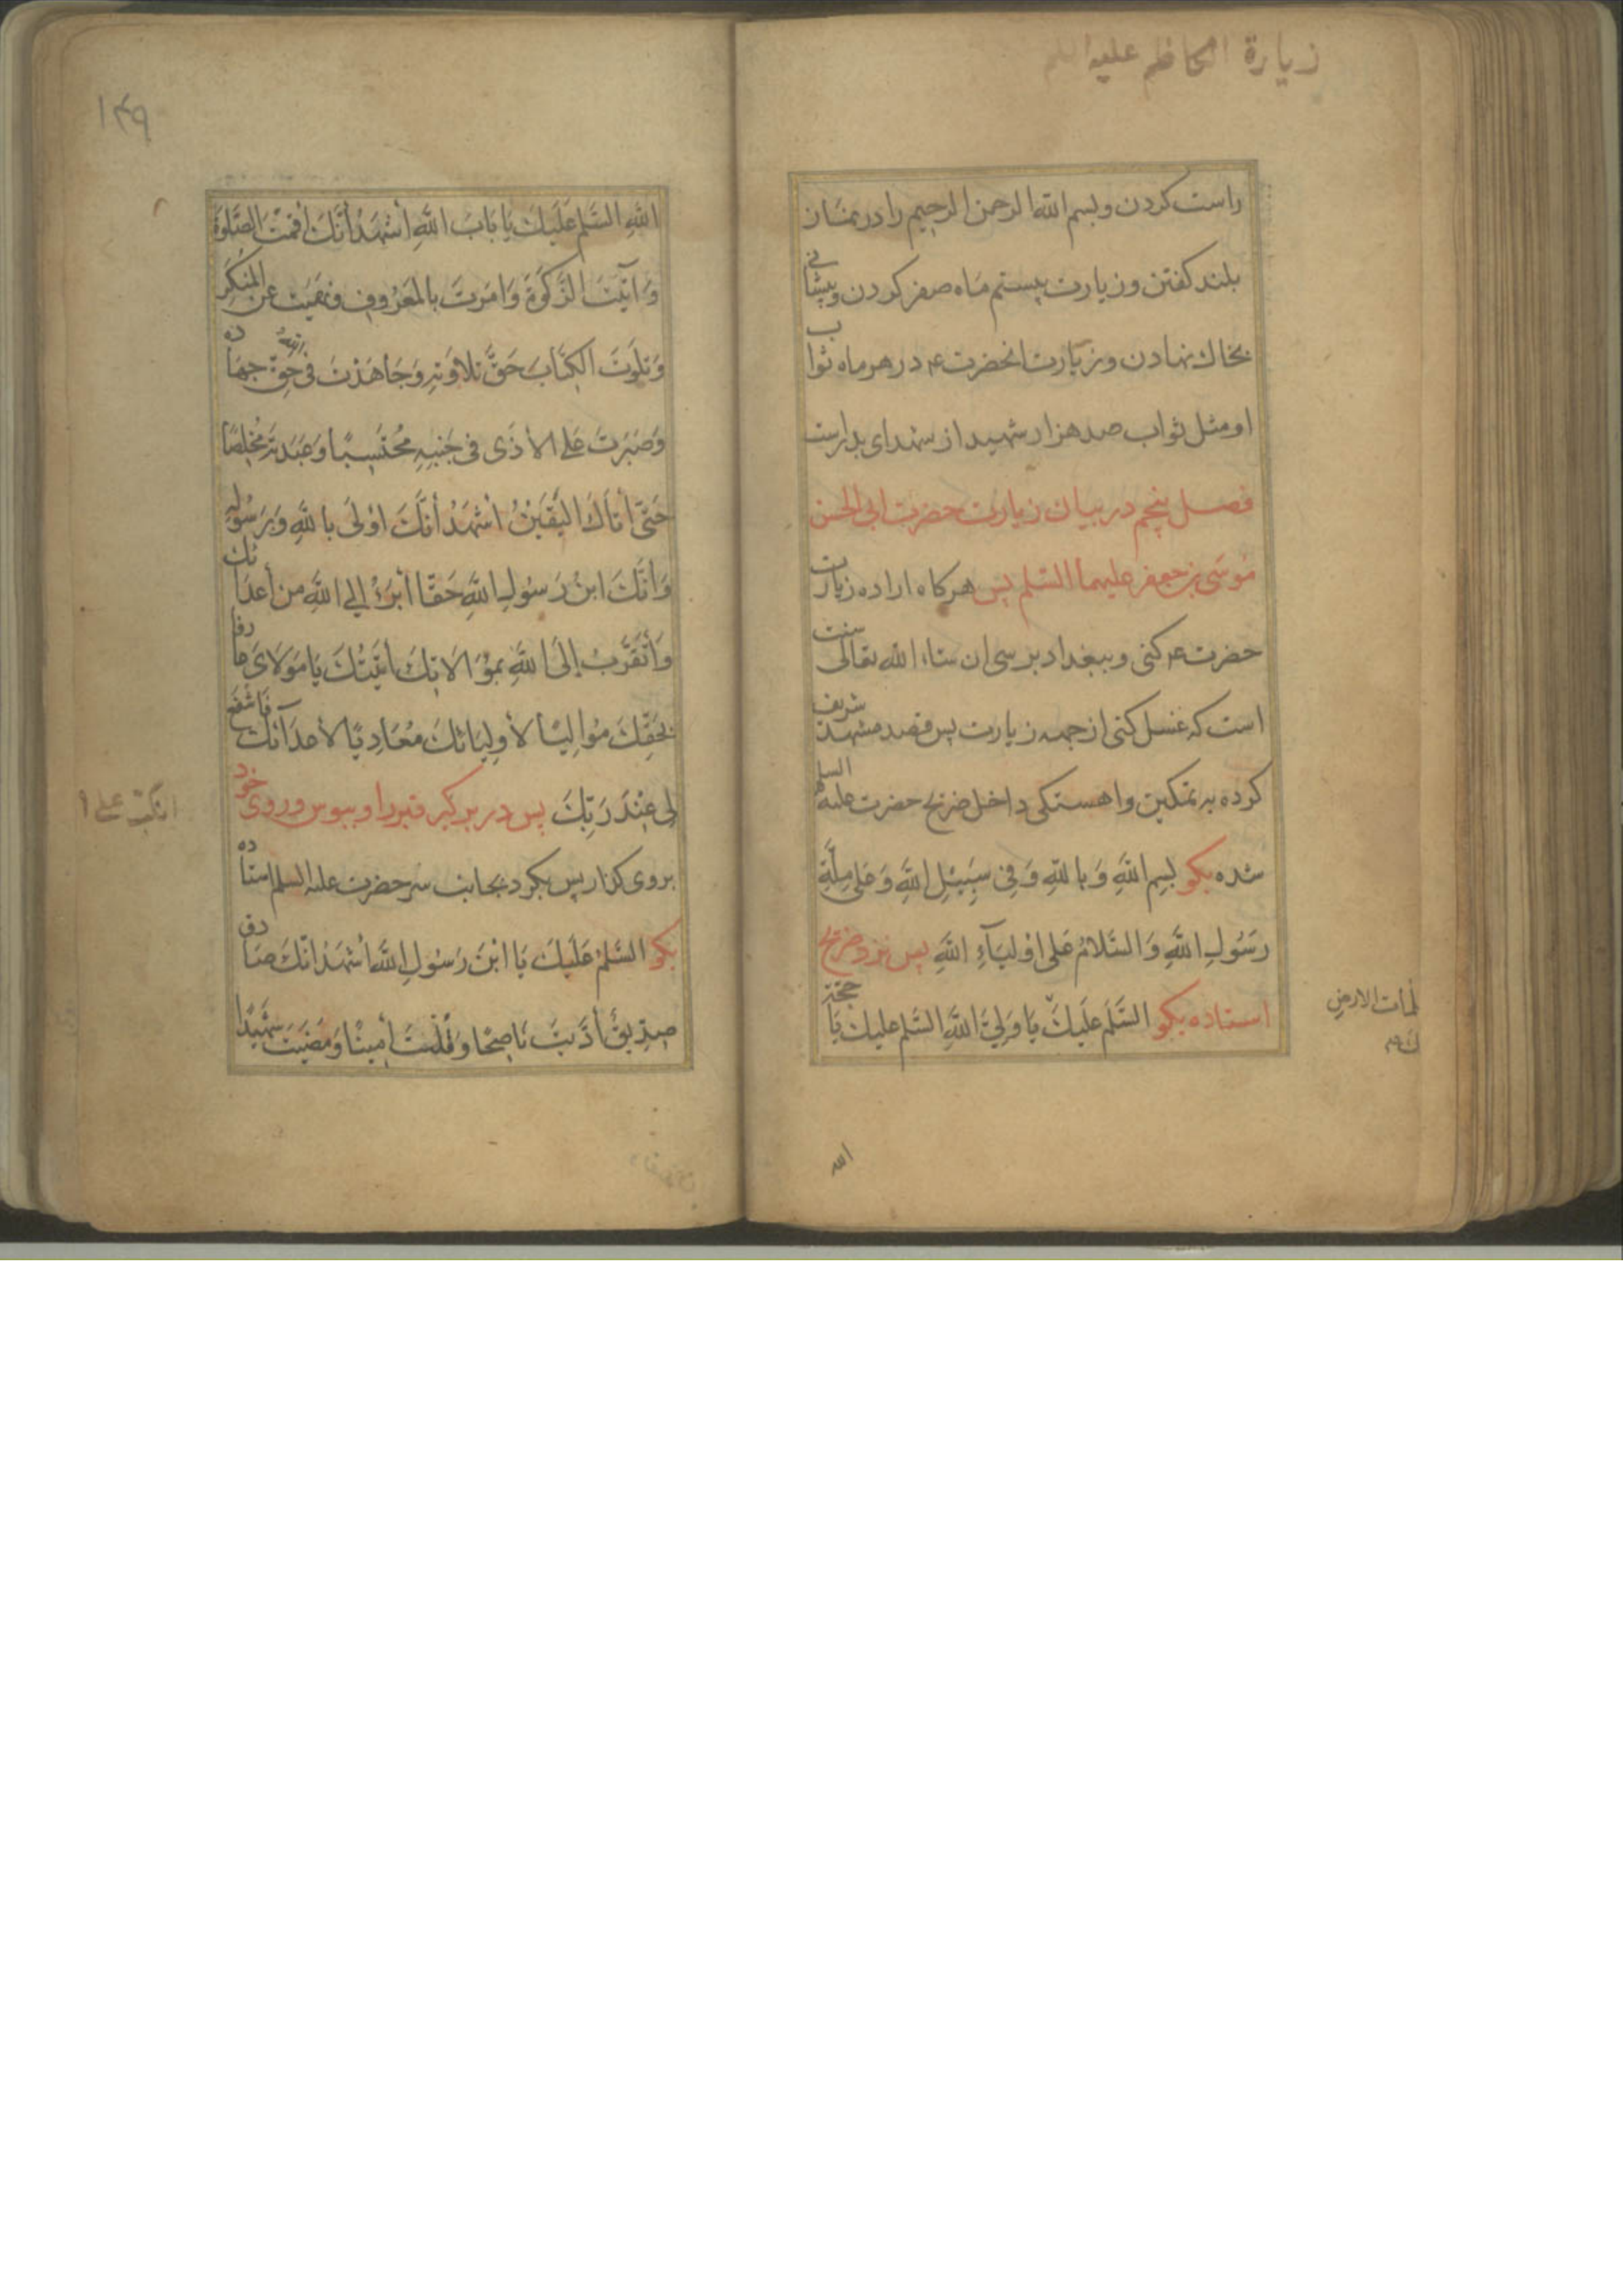 زيارة الكاظم عليه السلم
راست کردن و بسم الله الرحمن الرحیم را در نماز
بلند کفتن و زیارت بیستم ماه صفر کردن و پیشانی
بخاك نهادن و زیارت انحضرت ع در هر ماه ثواب
او مثل ثواب صد هزار شهید از شهدای بدر است
فصل پنجم در بیان زیارت حضرت ابی الحسن
موسی بن جعفر علیهما السلم پس هرکاه اراده زیارت
حضرت ع کنی و ببغداد برسی ان شاء الله تعالی سنت
است که غسل کنی از جهه زیارت پس قصد مشهد شریف
کرده به تمکین و اهستکی داخل ضریح حضرت علیه السلم
شده بکو بِسمِ اللهِ وَبِاللهِ وَفِی سَبِیلِ اللهِ وَعَلی مِلَّةِ
رَسُولِ اللهِ وَالسَّلامُ عَلی اَوْلیَآءِ اللهِ پس نزد ضریح
استاده بکو السَّلَم عَلَیكَ یَا وَلِیَّ اللهِ السَّلم علیك یَا حجّة
لمات الارض
الله
۱۴۹
اللهِ السَّلم عَلَیكَ یَا بَابَ اللهِ أَشهَدُ أَنَّكَ أَقَمتَ الصَّلوةَ
وَآتَیتَ الزَّکَوةَ وَاَمَرتَ بِالمَعرُوفِ وَنَهَیتَ عَنِ المُنکَرِ
وَتَلَوتَ الکِتَابَ حَقَّ تِلاوَتِهِ وَجَاهَدْتَ فی اللهِ حَقّ جِهَادِه
وَصَبَرتَ عَلی الأَذَی فی جَنبِهِ مُحتَسِبًا وَعَبَدتَه مُخلِصًا
حَتّی أَتَاكَ الیَقِینُ اَشهَدُ أَنَّكَ اَوْلَی بِاللهِ وَبِرَسُولِهِ
وَأَنَّكَ ابنُ رَسُولِ اللهِ حَقًّا أَبرَءُ إِلی اللهِ مِن أَعدَائك
وَأَتَقَرَّبُ إِلَی اللهِ بِمُوَالاتِكَ أَتَیتُكَ یَا مَولَایَ عارفا
بِحَقِّكَ مُوَالِیًا لأَولِیَائكَ مُعَادِیًا لأَعدَآئكَ فَاشفَع
لِی عِنْدَ رَبِّكَ پس در بر کیر قبر را و ببوس و روی خود
بروی کذار پس بکرد بجانب سر حضرت علیه السلم استاده
بکو السَّلمُ عَلَیكَ یَا ابْنَ رَسُولِ اللهِ أَشهَدُ انَّكَ صَادق
صِدِّیقٌ أَدَّیتَ نَاصِحًا وَقُلتَ أَمِینًا وَمَضَیتَ شَهِیدًا
انکبّ علی ا